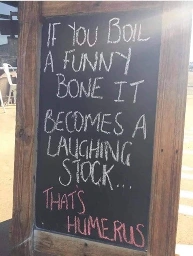 IF YOU BOIL
A FUNNY
BONE IT
BECOMES A
LAUGHING
STOCK...
THAT'S
HUMERUS